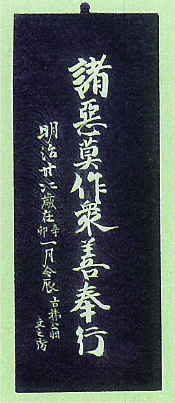 諸惡莫作衆善奉行
明治廿四歳在辛卯一月令辰